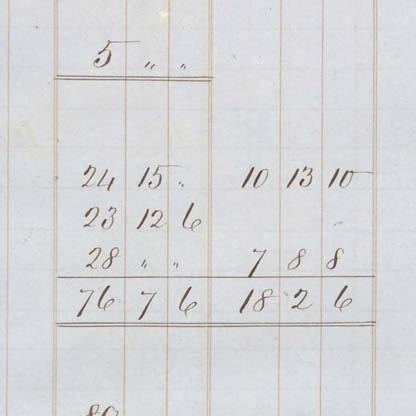 5 " "
24 15 " 10 13 10
23 12 6
28 " " 7 8 8
76 7 6 18 2 6